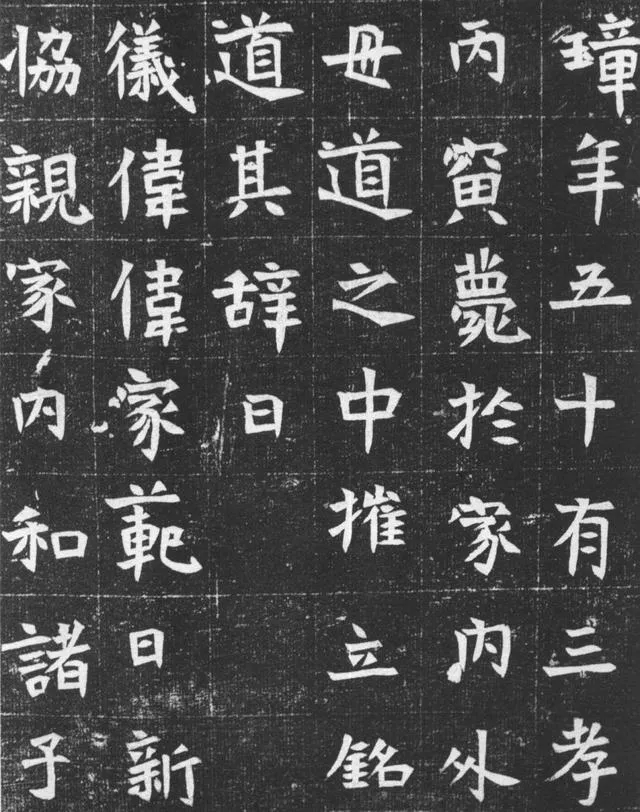 璋年五十有三孝
丙寅薨於家內外
毋道之中摧立銘
道其辞曰
儀偉偉家範日新
協親家内和諸子